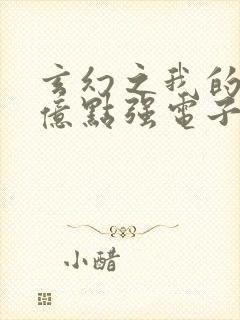 玄幻之我的
億點强電子
小醋